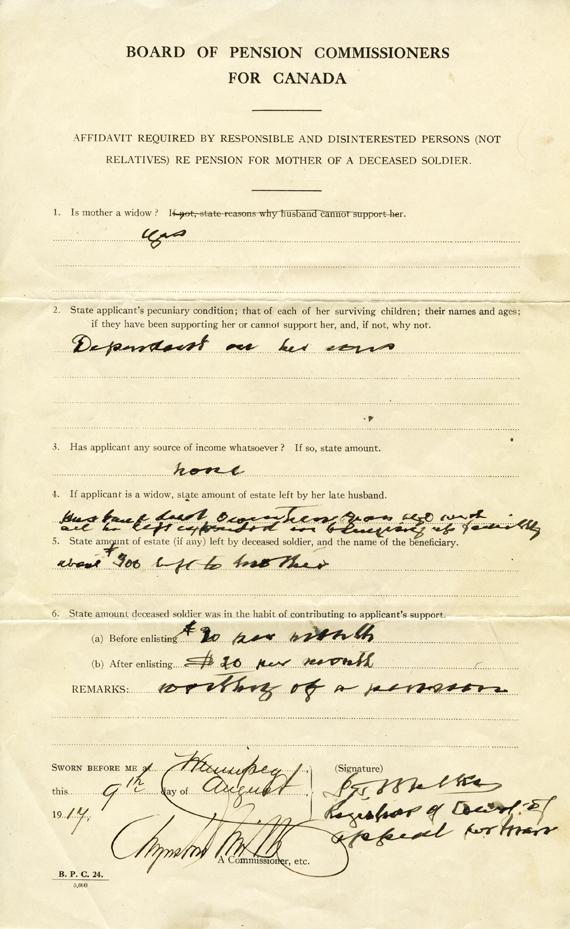 BOARD OF PENSION COMMISSIONERS
FOR CANADA
AFFIDAVIT REQUIRED BY RESPONSIBLE AND DISINTERESTED PERSONS (NOT
RELATIVES) RE PENSION FOR MOTHER OF A DECEASED SOLDIER.
1. Is mother a widow? If not, state reasons why husband cannot support her.
yes
2. State applicant's pecuniary condition; that of each of her surviving children; their names and ages;
if they have been supporting her or cannot support her, and, if not, why not.
Dependant on her sons
3. Has applicant any source of income whatsoever? If so, state amount.
none
4. If applicant is a widow, state amount of estate left by her late husband.
Husband died years ago and
all he left expended in bringing up family
5. State amount of estate (if any) left by deceased soldier, and the name of the beneficiary.
about $900 left to mother
6. State amount deceased soldier was in the habit of contributing to applicant's support.
(a) Before enlisting $20 per month
(b) After enlisting $20 per month
REMARKS: worthy of a pension
SWORN BEFORE ME at Winnipeg
this 9th day of August
1917.
(Signature)
Registrar of Court of
appeal for Man
A Commissioner, etc.
B. P. C. 24.
5,000